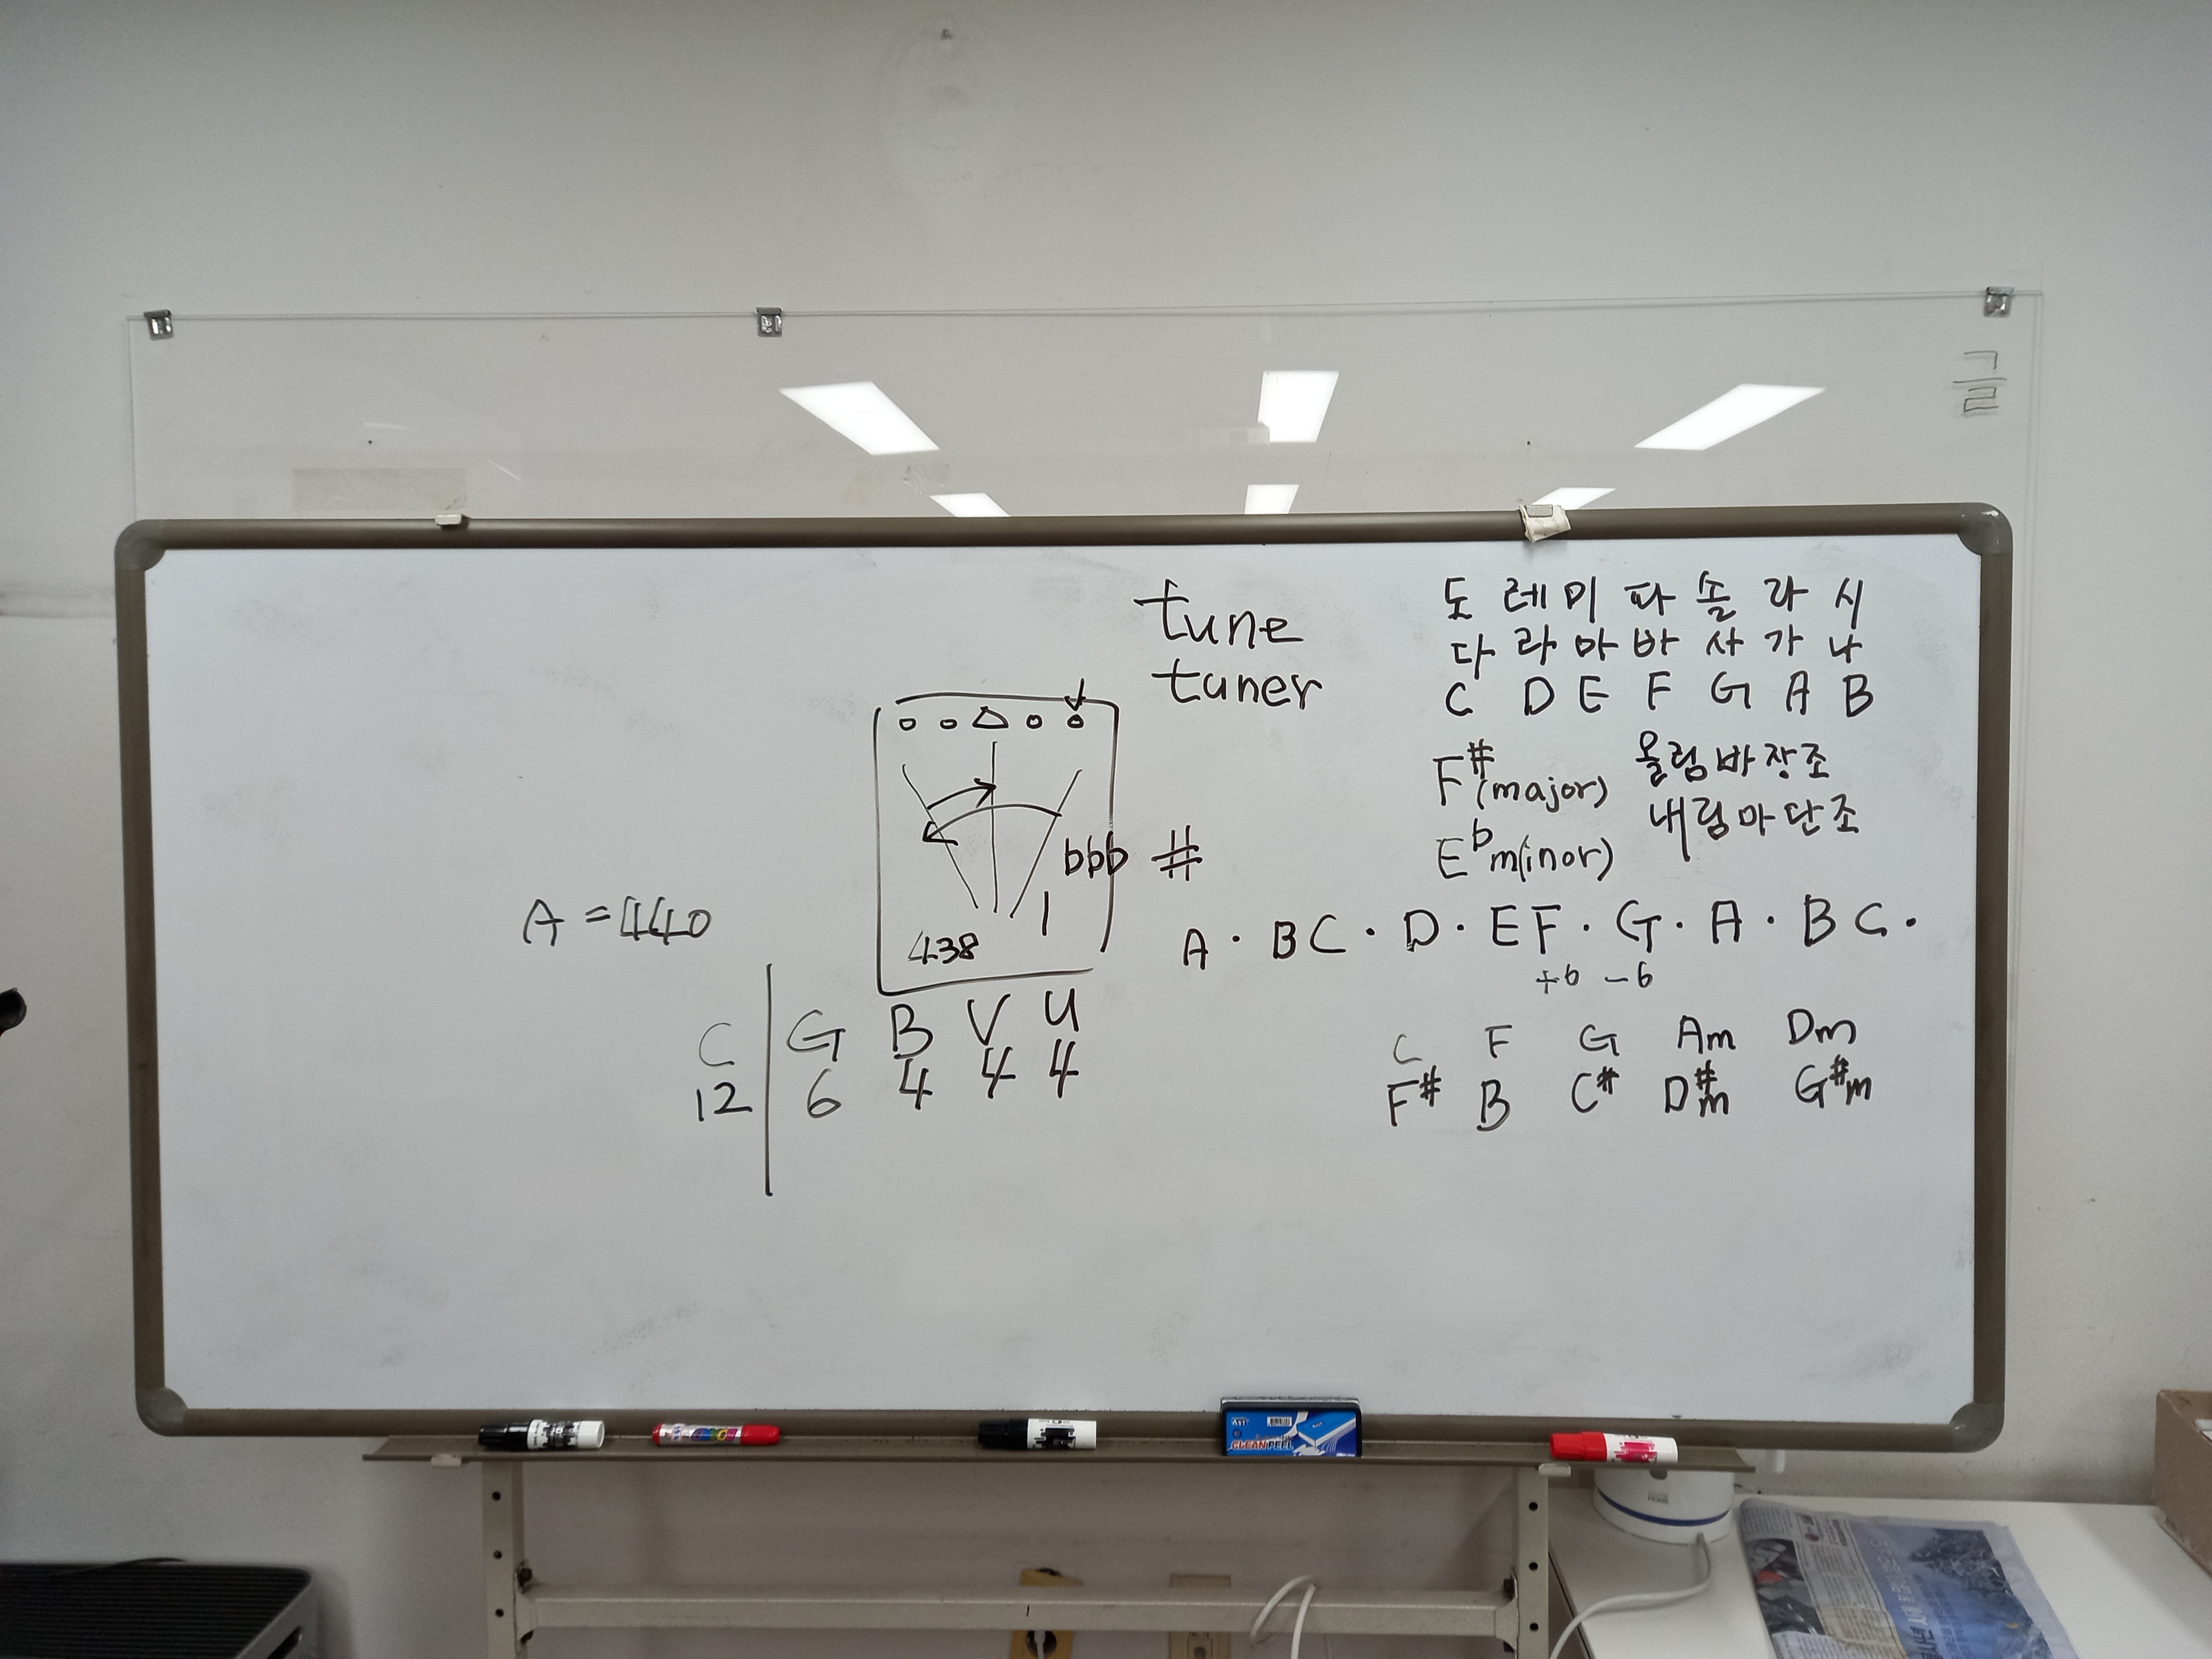 글
tune
tuner
도 레 미 파 솔 라 시
다 라 마 바 사 가 나
C D E F G A B
F#(major) 올림바장조
E♭m(inor) 내림마단조
bbb #
A = 440
438
A · B C · D · E F · G · A · B C ·
+6 -6
C G B V U
12 6 4 4 4
C F G Am Dm
F# B C# D#m G#m
CLEAN PEEL